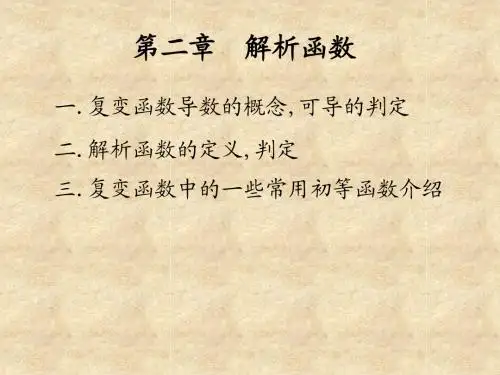 第二章 解析函数
一. 复变函数导数的概念, 可导的判定
二. 解析函数的定义, 判定
三. 复变函数中的一些常用初等函数介绍